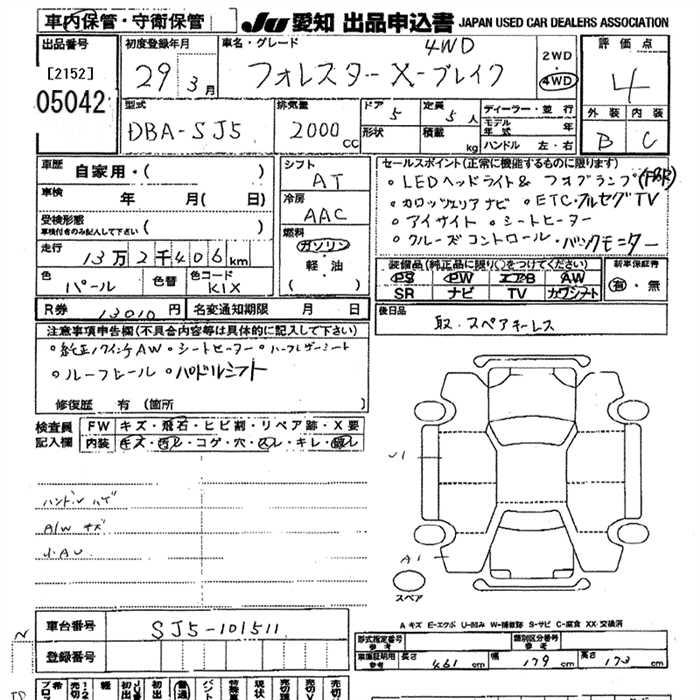 車内保管・守衛保管
JU 愛知 出品申込書 JAPAN USED CAR DEALERS ASSOCIATION
出品番号 初度登録年月 車名・グレード 評価点
[2152] 05042
29年 3月
4WD
フォレスター X-ブレイク
2WD
4WD
4
型式 DBA-SJ5
排気量 2000 CC
ドア 5
定員 5人
形状 積載 kg
ディーラー・並行
モデル年式 年
ハンドル 左・右
外装 内装
B C
車歴 自家用・( )
車検 年 月( 日)
受検形態 車検付きのみ記入して下さい ( )
走行 13万2千406km
色 パール 色替 色コード K1X
シフト AT
冷房 AAC
燃料 ガソリン
軽・油
( )
セールスポイント(正常に機能するものに限ります)
○LEDヘッドライト& フォグランプ(F&R)
○カロッツェリアナビ ○ETC・フルセグTV
○アイサイト ○シートヒーター
○クルーズコントロール・バックモニター
装備品(純正品に限り○をつけてください)
PS PW エアB AW
SR ナビ TV カワシート
新車保証書
有・無
R券 13010円 名変通知期限 月 日
後日品
取・スペアキーレス
注意事項申告欄(不具合内容等は具体的に記入して下さい)
○純正17インチAW ○シートヒーター ○ハーフレザーシート
○ルーフレール ○パドルシフト
修復歴 有 (箇所 )
検査員記入欄
FW キズ・飛石・ヒビ割・リペア跡・X要
内装 キズ・汚レ・コゲ・穴・スレ・キレ・破レ
ハンドル ハゲ
A/W キズ
小AU
U1
A1
スペア
A キズ E-エクボ U-凹み W-補修跡 S-サビ C-腐食 XX-交換済
車台番号 SJ5-101511
登録番号
型式指定番号 参考
類別区分番号 参考
車庫証明用 参考 長さ 461cm 幅 179cm 高さ 173cm